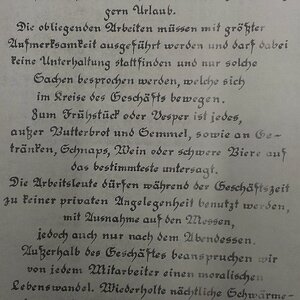 gern Urlaub.
Die obliegenden Arbeiten müssen mit größter
Aufmerksamkeit ausgeführt werden und darf dabei
keine Unterhaltung stattfinden und nur solche
Sachen besprochen werden, welche sich
im Kreise des Geschäfts bewegen.
Zum Frühstück oder Vesper ist jedes,
außer Butterbrot und Semmel, sowie an Ge-
tränken, Schnaps, Wein oder schwere Biere auf
das bestimmteste untersagt.
Die Arbeitsleute dürfen während der Geschäftszeit
zu keiner privaten Angelegenheit benutzt werden,
mit Ausnahme auf den Messen,
jedoch auch nur nach dem Abendessen.
Außerhalb des Geschäftes beanspruchen wir
von jedem Mitarbeiter einen moralischen
Lebenswandel. Wiederholte nächtliche Schwärme-